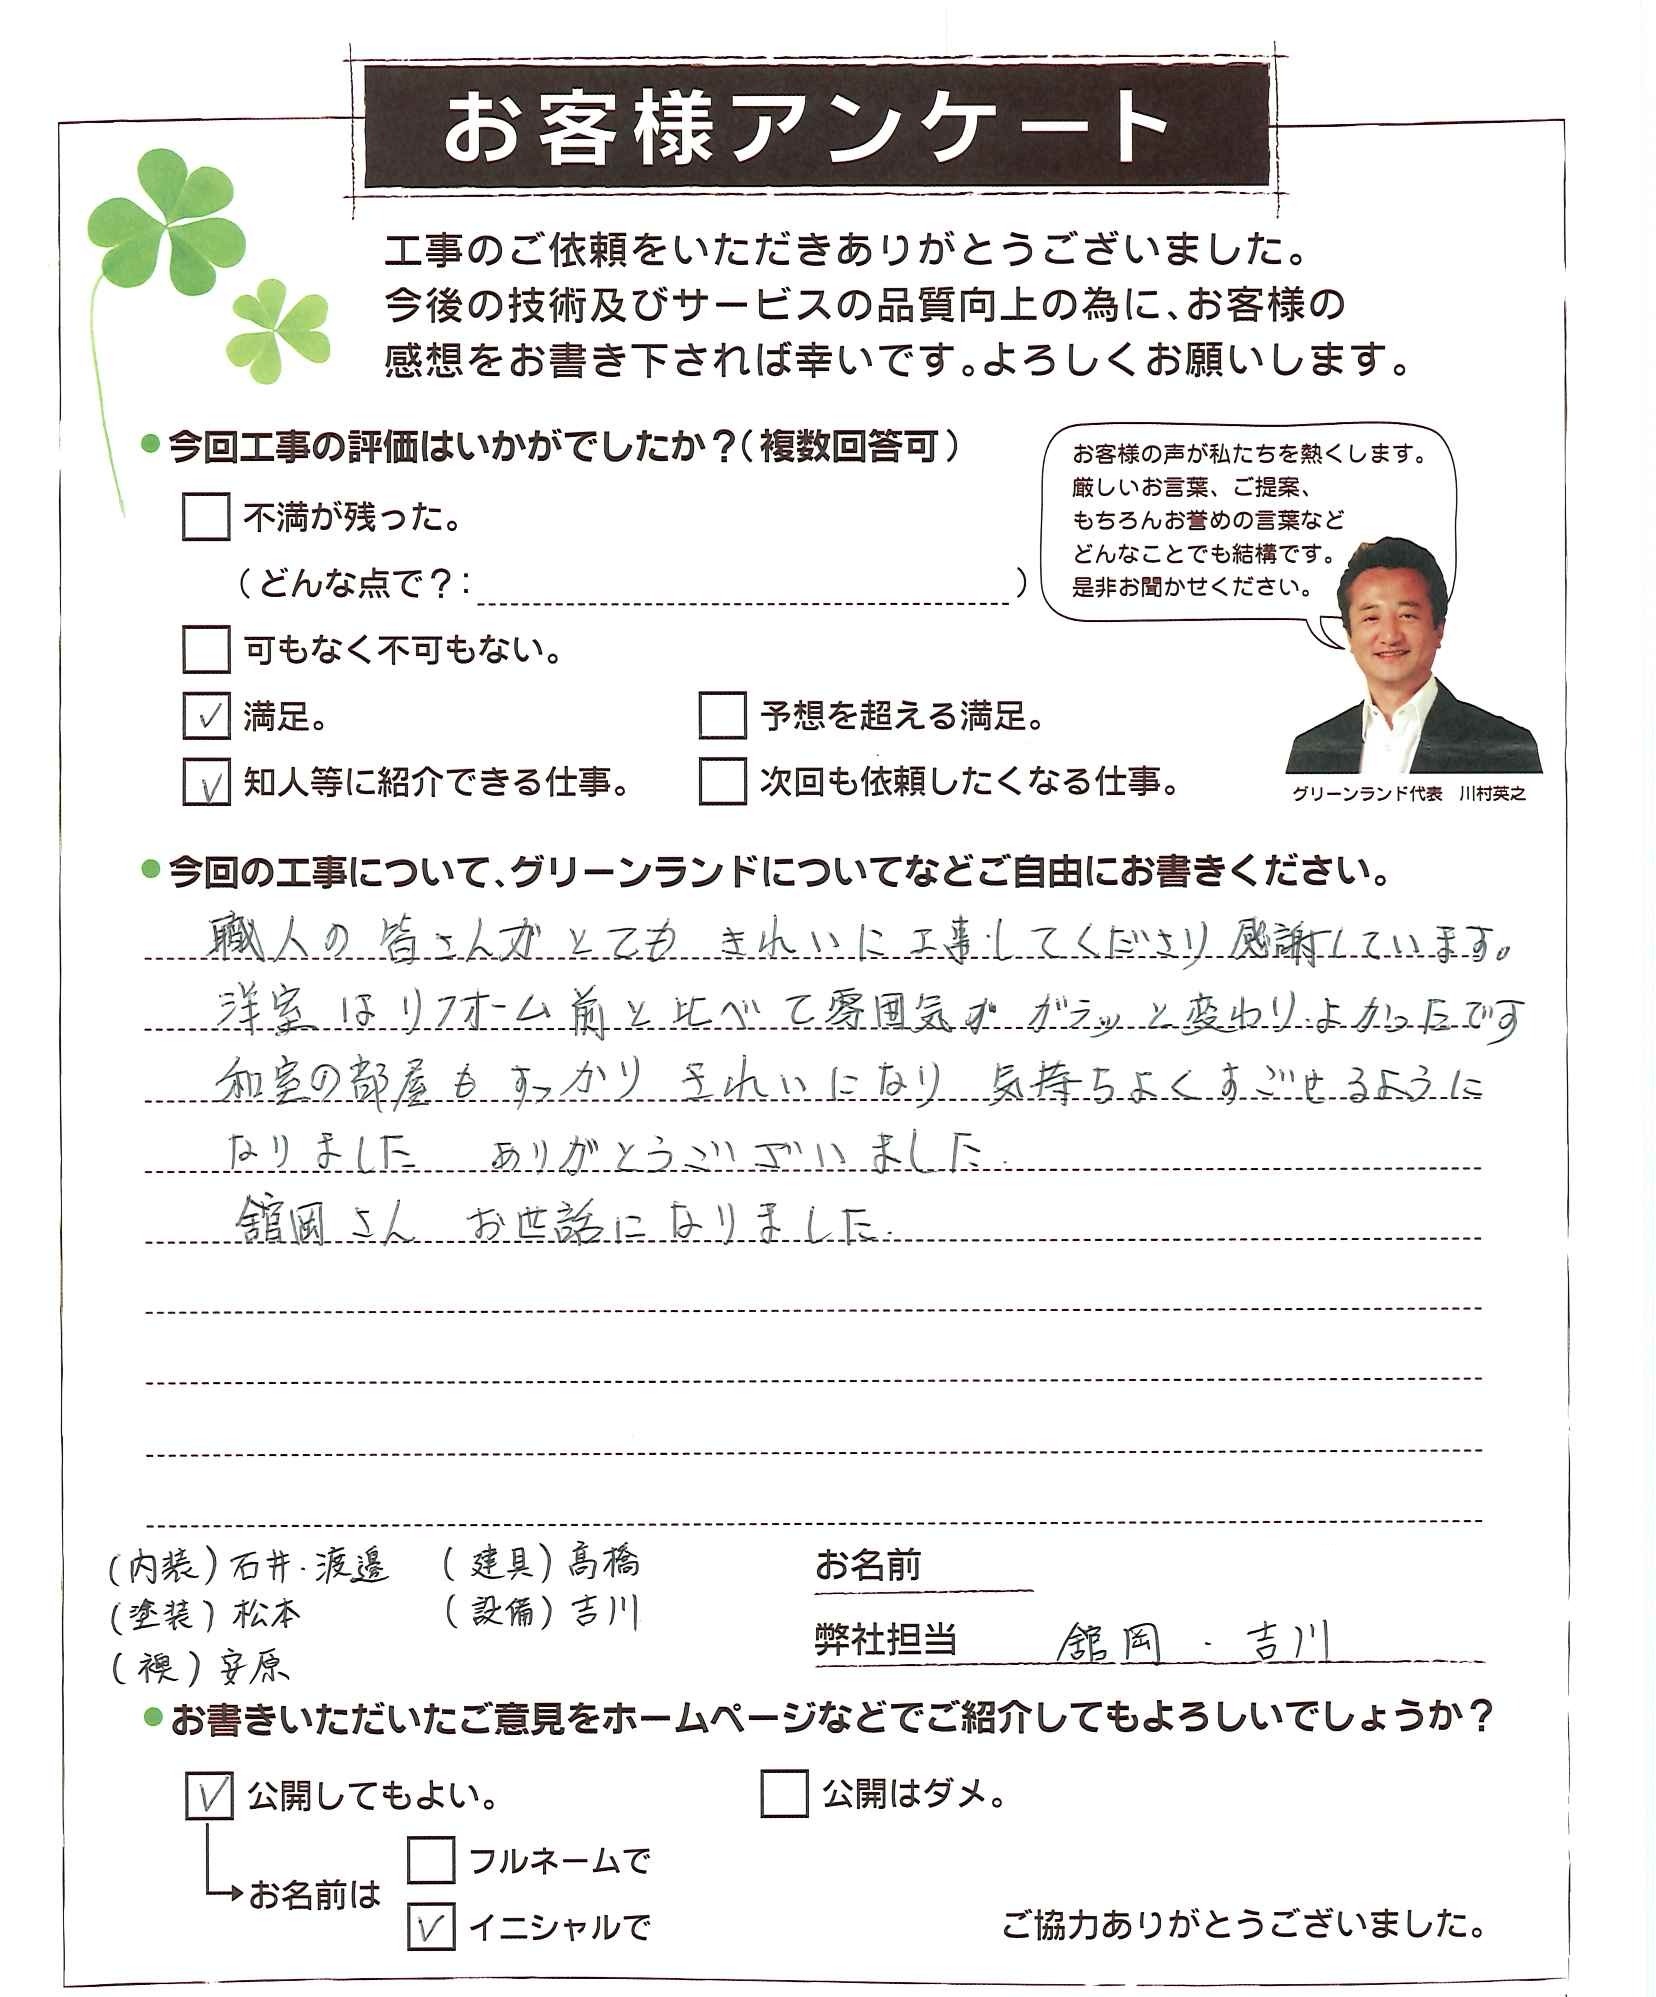 お客様アンケート
工事のご依頼をいただきありがとうございました。
今後の技術及びサービスの品質向上の為に、お客様の
感想をお書き下されば幸いです。よろしくお願いします。
●今回工事の評価はいかがでしたか？（複数回答可）
不満が残った。
（どんな点で？：　　　　）
可もなく不可もない。
✓ 満足。
予想を超える満足。
✓ 知人等に紹介できる仕事。
次回も依頼したくなる仕事。
お客様の声が私たちを熱くします。
厳しいお言葉、ご提案、
もちろんお誉めの言葉など
どんなことでも結構です。
是非お聞かせください。
グリーンランド代表　川村英之
●今回の工事について、グリーンランドについてなどご自由にお書きください。
職人の皆さんがとてもきれいに工事してくださり感謝しています。
洋室はリフォーム前と比べて雰囲気がガラッと変わりよかったです
和室の部屋もすっかりきれいになり気持ちよくすごせるように
なりました　ありがとうございました.
舘岡さん　お世話になりました.
（内装）石井・渡邉　（建具）高橋
（塗装）松本　（設備）吉川
（襖）安原
お名前
弊社担当　舘岡・吉川
●お書きいただいたご意見をホームページなどでご紹介してもよろしいでしょうか？
✓ 公開してもよい。
公開はダメ。
お名前は
フルネームで
✓ イニシャルで
ご協力ありがとうございました。